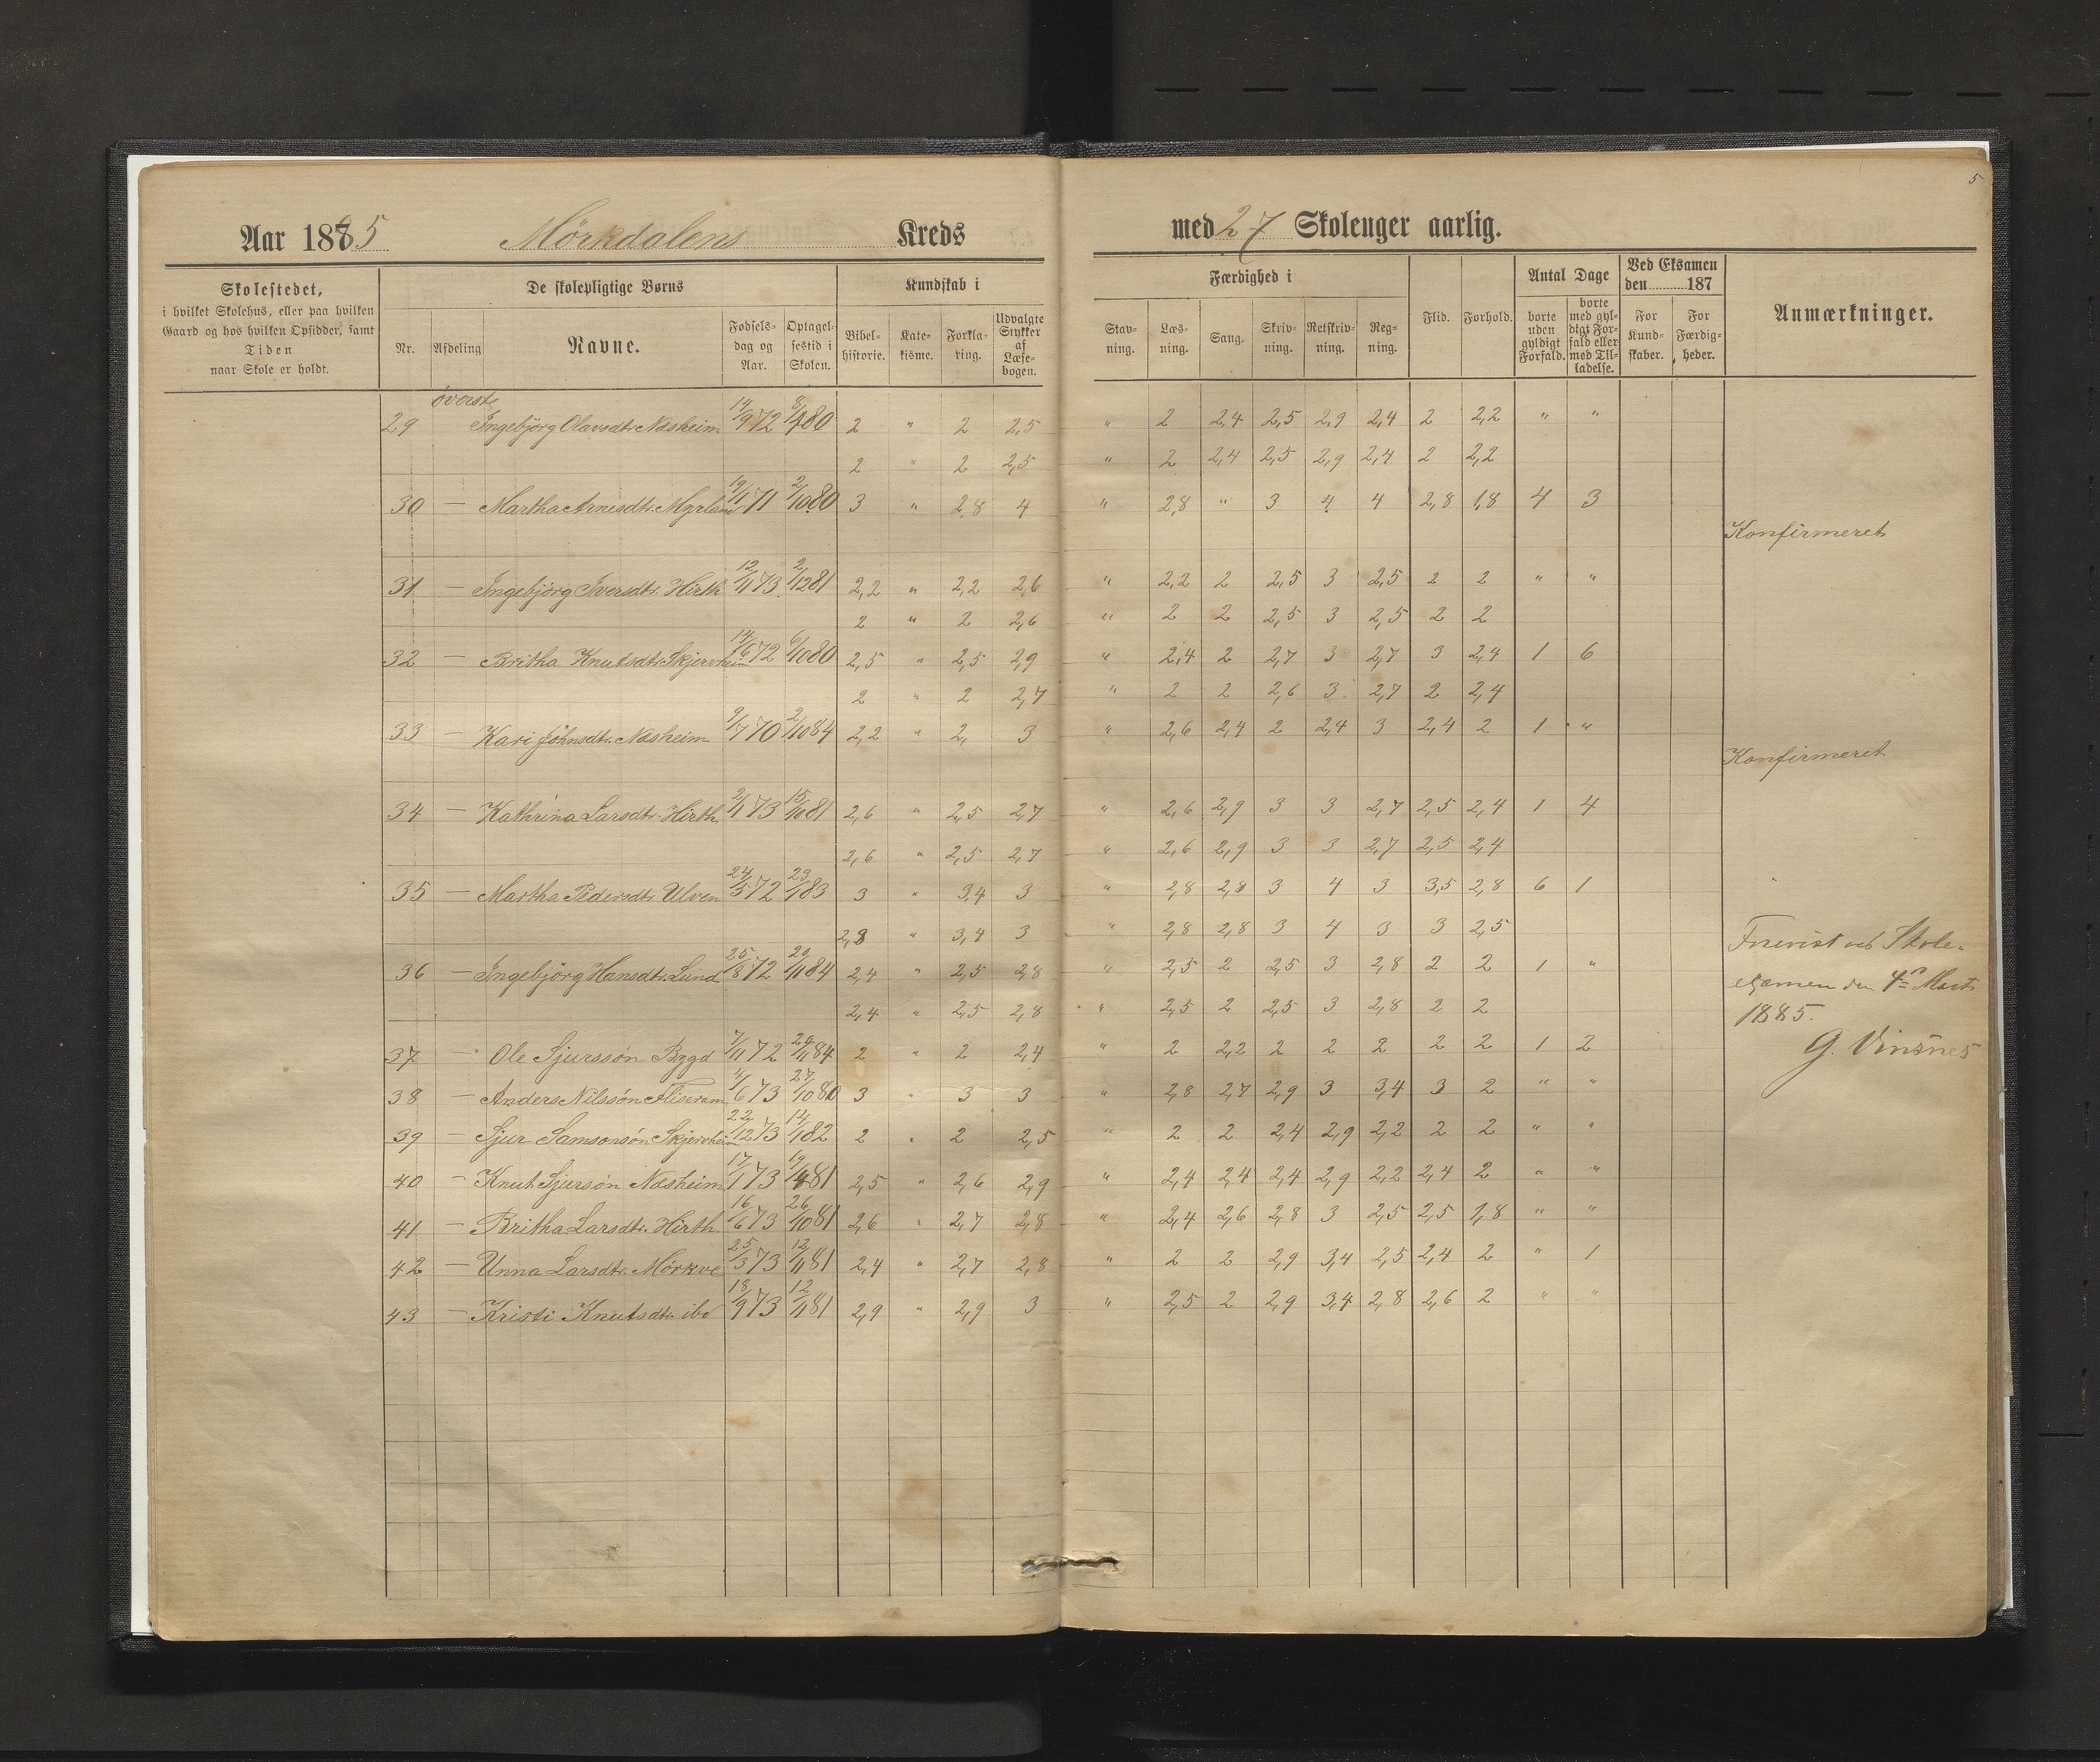 5
Aar 1885 Mörkdalens Kreds med 27 Skoleuger aarlig.
Skolestedet,
i hvilket Skolehus, eller paa hvilken
Gaard og hos hvilken Opsidder, samt
Tiden
naar Skole er holdt.
De skolepligtige Børns
Nr. Afdeling Navne. Fødselsdag og Aar. Optagelsestid i Skolen.
Kundskab i
Bibelhistorie. Katekisme. Forklaring. Udvalgte Stykker af Læsebogen.
Færdighed i
Stavning. Læsning. Sang. Skrivning. Retskrivning. Regning.
Flid. Forhold.
Antal Dage
borte uden gyldigt Forfald. borte med gyldigt Forfald eller med Tilladelse.
Ved Eksamen den 187
For Kundskaber. For Færdigheder.
Anmærkninger.
øverste
29 Ingebjörg Olavsdtr. Næsheim 14/9 72 8/1 80 2 " 2 2,5 " 2 2,4 2,5 2,9 2,4 2 2,2 " "
2 " 2 2,5 " 2 2,4 2,5 2,9 2,4 2 2,2
30 — Martha Arnesdtr. Myrland 19/11 71 2/10 80 3 " 2,8 4 " 2,8 " 3 4 4 2,8 1,8 4 3
Konfirmeret
31 — Ingebjörg Iversdtr. Hirth 12/11 73 2/12 81 2,2 " 2,2 2,6 " 2,2 2 2,5 3 2,5 2 2 " "
2 " 2 2,6 " 2 2 2,5 3 2,5 2 2
32 — Britha Knutsdtr. Skjervheim 14/6 72 6/10 80 2,5 " 2,5 2,9 " 2,4 2 2,7 3 2,7 3 2,4 1 6
2 " 2 2,7 " 2 2 2,6 3 2,7 2 2,4
33 — Kari Johnsdtr. Næsheim 9/7 70 2/10 84 2,2 " 2, 3 " 2,6 2,4 2 2,4 3 2,4 2 1 "
Konfirmeret
34 — Kathrina Larsdtr. Hirth 2/11 73 15/10 81 2,6 " 2,5 2,7 " 2,6 2,9 3 3 2,7 2,5 2,4 1 4
2,6 " 2,5 2,7 " 2,6 2,9 3 3 2,7 2,5 2,4
35 — Martha Pedersdtr. Ulven 24/5 72 23/1 83 3 " 3,4 3 " 2,8 2,8 3 4 3 3,5 2,8 6 1
2,8 " 3,4 3 " 2,8 2,8 3 4 3 3 2,5
36 — Ingebjörg Hansdtr. Lund 25/8 72 29/11 84 2,4 " 2,5 2,8 " 2,5 2 2,5 3 2,8 2 2 1 "
2,4 " 2,5 2,8 " 2,5 2 2,5 3 2,8 2 2
Forevist ved Skole-
examen den 4de Marts
1885.
G. Vinsnes
37 Ole Sjurssön Bygd 7/11 72 29/11 84 2 " 2 2,4 " 2 2,2 2 2 2 2 2 1 2
38 — Anders Nilssön Fliseram 4/6 73 27/10 80 3 " 3 3 " 2,8 2,7 2,9 3 3,4 3 2 " "
39 — Sjur Samsonsön Skjervheim 22/12 73 14/1 82 2 " 2 2,5 " 2 2 2,4 2,9 2,2 2 2 " "
40 — Knut Sjursön Næsheim 17/1 73 19/1 81 2,5 " 2,6 2,9 " 2,4 2,4 2,4 2,9 2,2 2,4 2 " "
41 — Britha Larsdtr. Hirth 16/6 73 26/10 81 2,6 " 2,7 2,8 " 2,4 2,6 2,8 3 2,5 2,5 1,8 " "
42 — Unna Larsdtr. Mörkve 25/3 73 12/11 81 2,4 " 2,7 2,8 " 2 2 2,9 3,4 2,5 2,4 2 " 1
43 — Kristi Knutsdtr. ibd 18/9 73 12/11 81 2,9 " 2,9 3 " 2,5 2 2,9 3,4 2,8 2,6 2 " "